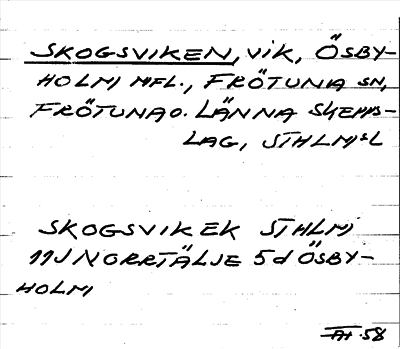 SKOGSVIKEN, VIK, ÖSBY-
HOLM MFL., FRÖTUNA SN,
FRÖTUNA O. LÄNNA SKEPPS-
LAG, STHLMS L
SKOGSVIK EK STHLM
11J NORRTÄLJE 5d ÖSBY-
HOLM
58